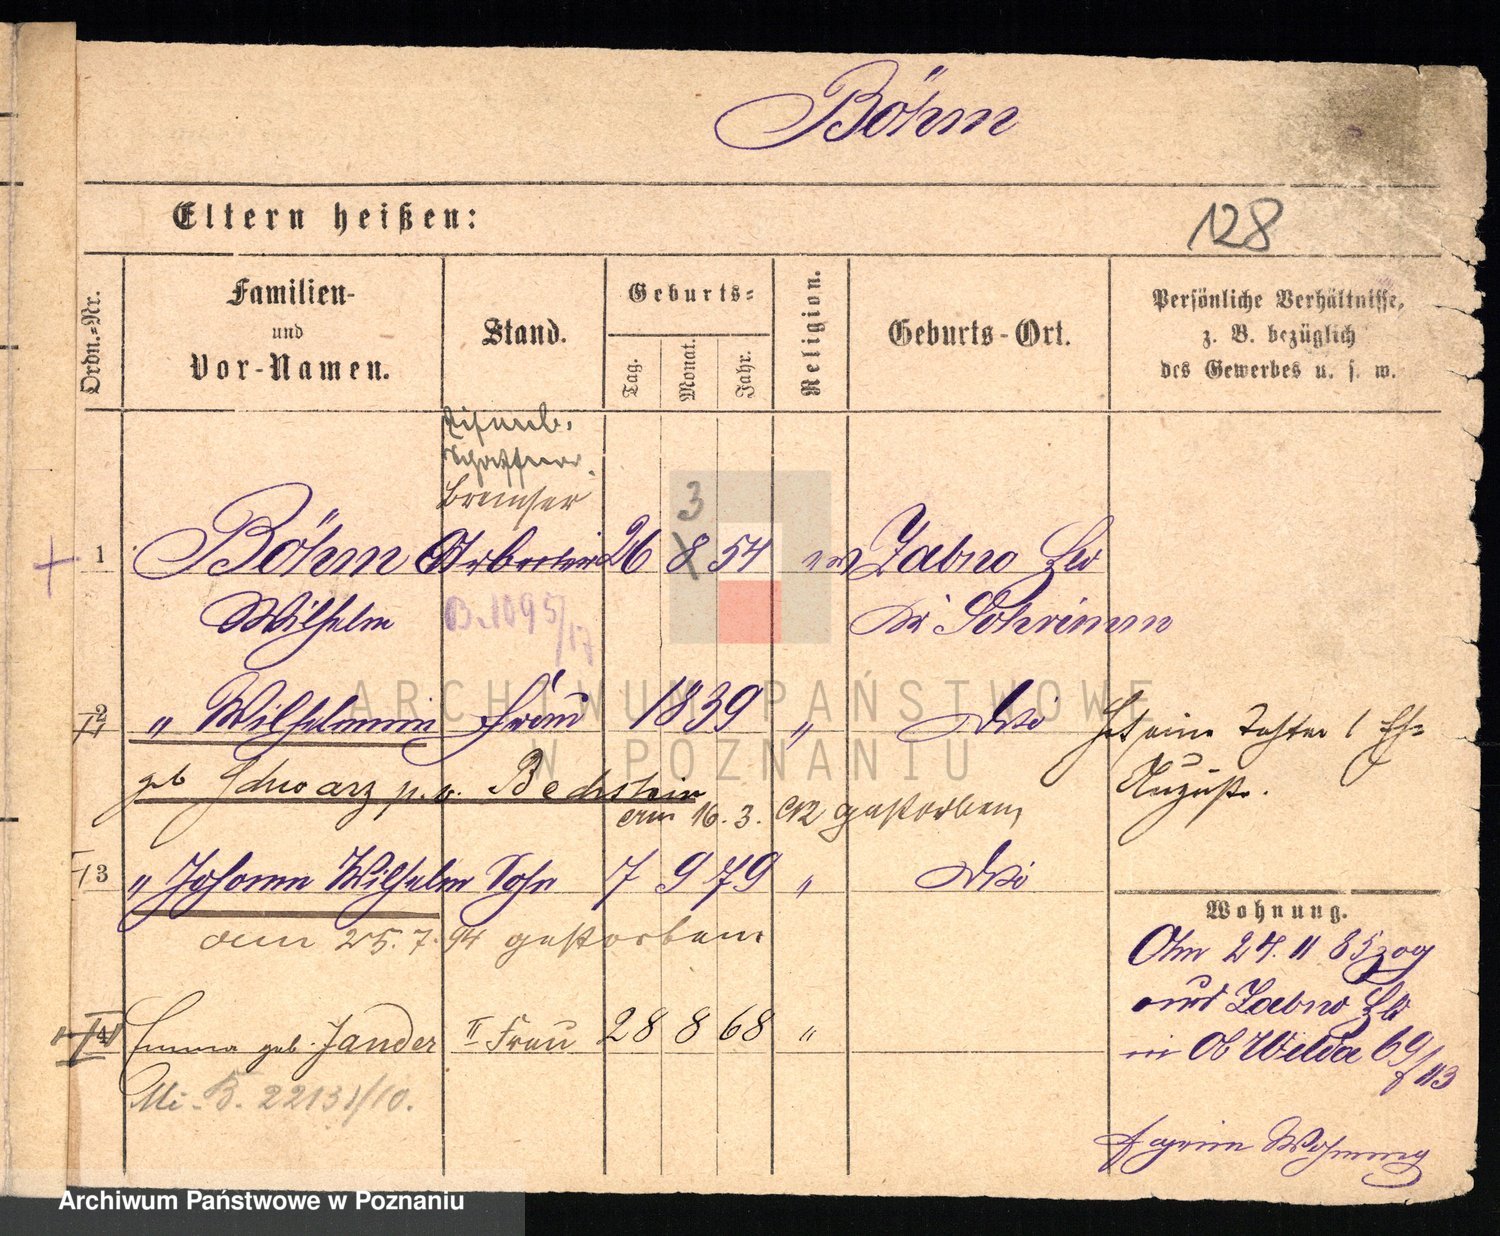 Böhm
Eltern heißen:
128
Ordn.-Nr.
Familien-
und
Vor-Namen.
Stand.
Geburts-
Tag.
Monat.
Jahr.
Religion.
Geburts-Ort.
Persönliche Verhältnisse,
z. B. bezüglich
des Gewerbes u. s. w.
Schaffner
Bremser
3
1 Böhm Arbeiter 26 8 54 ev Zabno
Wilhelm B. 1095/17 Kr Schrimm
2 " Wilhelmine Frau 1839 " Dto
geb Schwarz p. v. Bechstein
Hat eine Tochter
Auguste.
am 16. 3. 92 gestorben
3 " Johann Wilhelm Sohn 7 9 79 " Dto
am 25. 7. 94 gestorben
4 Emma geb. Jander II Frau 28 8 68 "
B. 22131/10.
Wohnung.
Am 24. 11 85 zog
aus Zabno
in Ob Wilda 69/113
Wohnung
ARCHIWUM PAŃSTWOWE
W POZNANIU
Archiwum Państwowe w Poznaniu